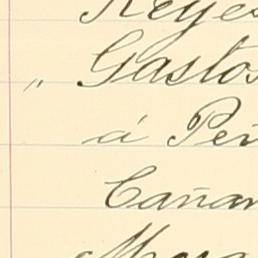 Reyes
„ Gastos
á Pei
Cañar